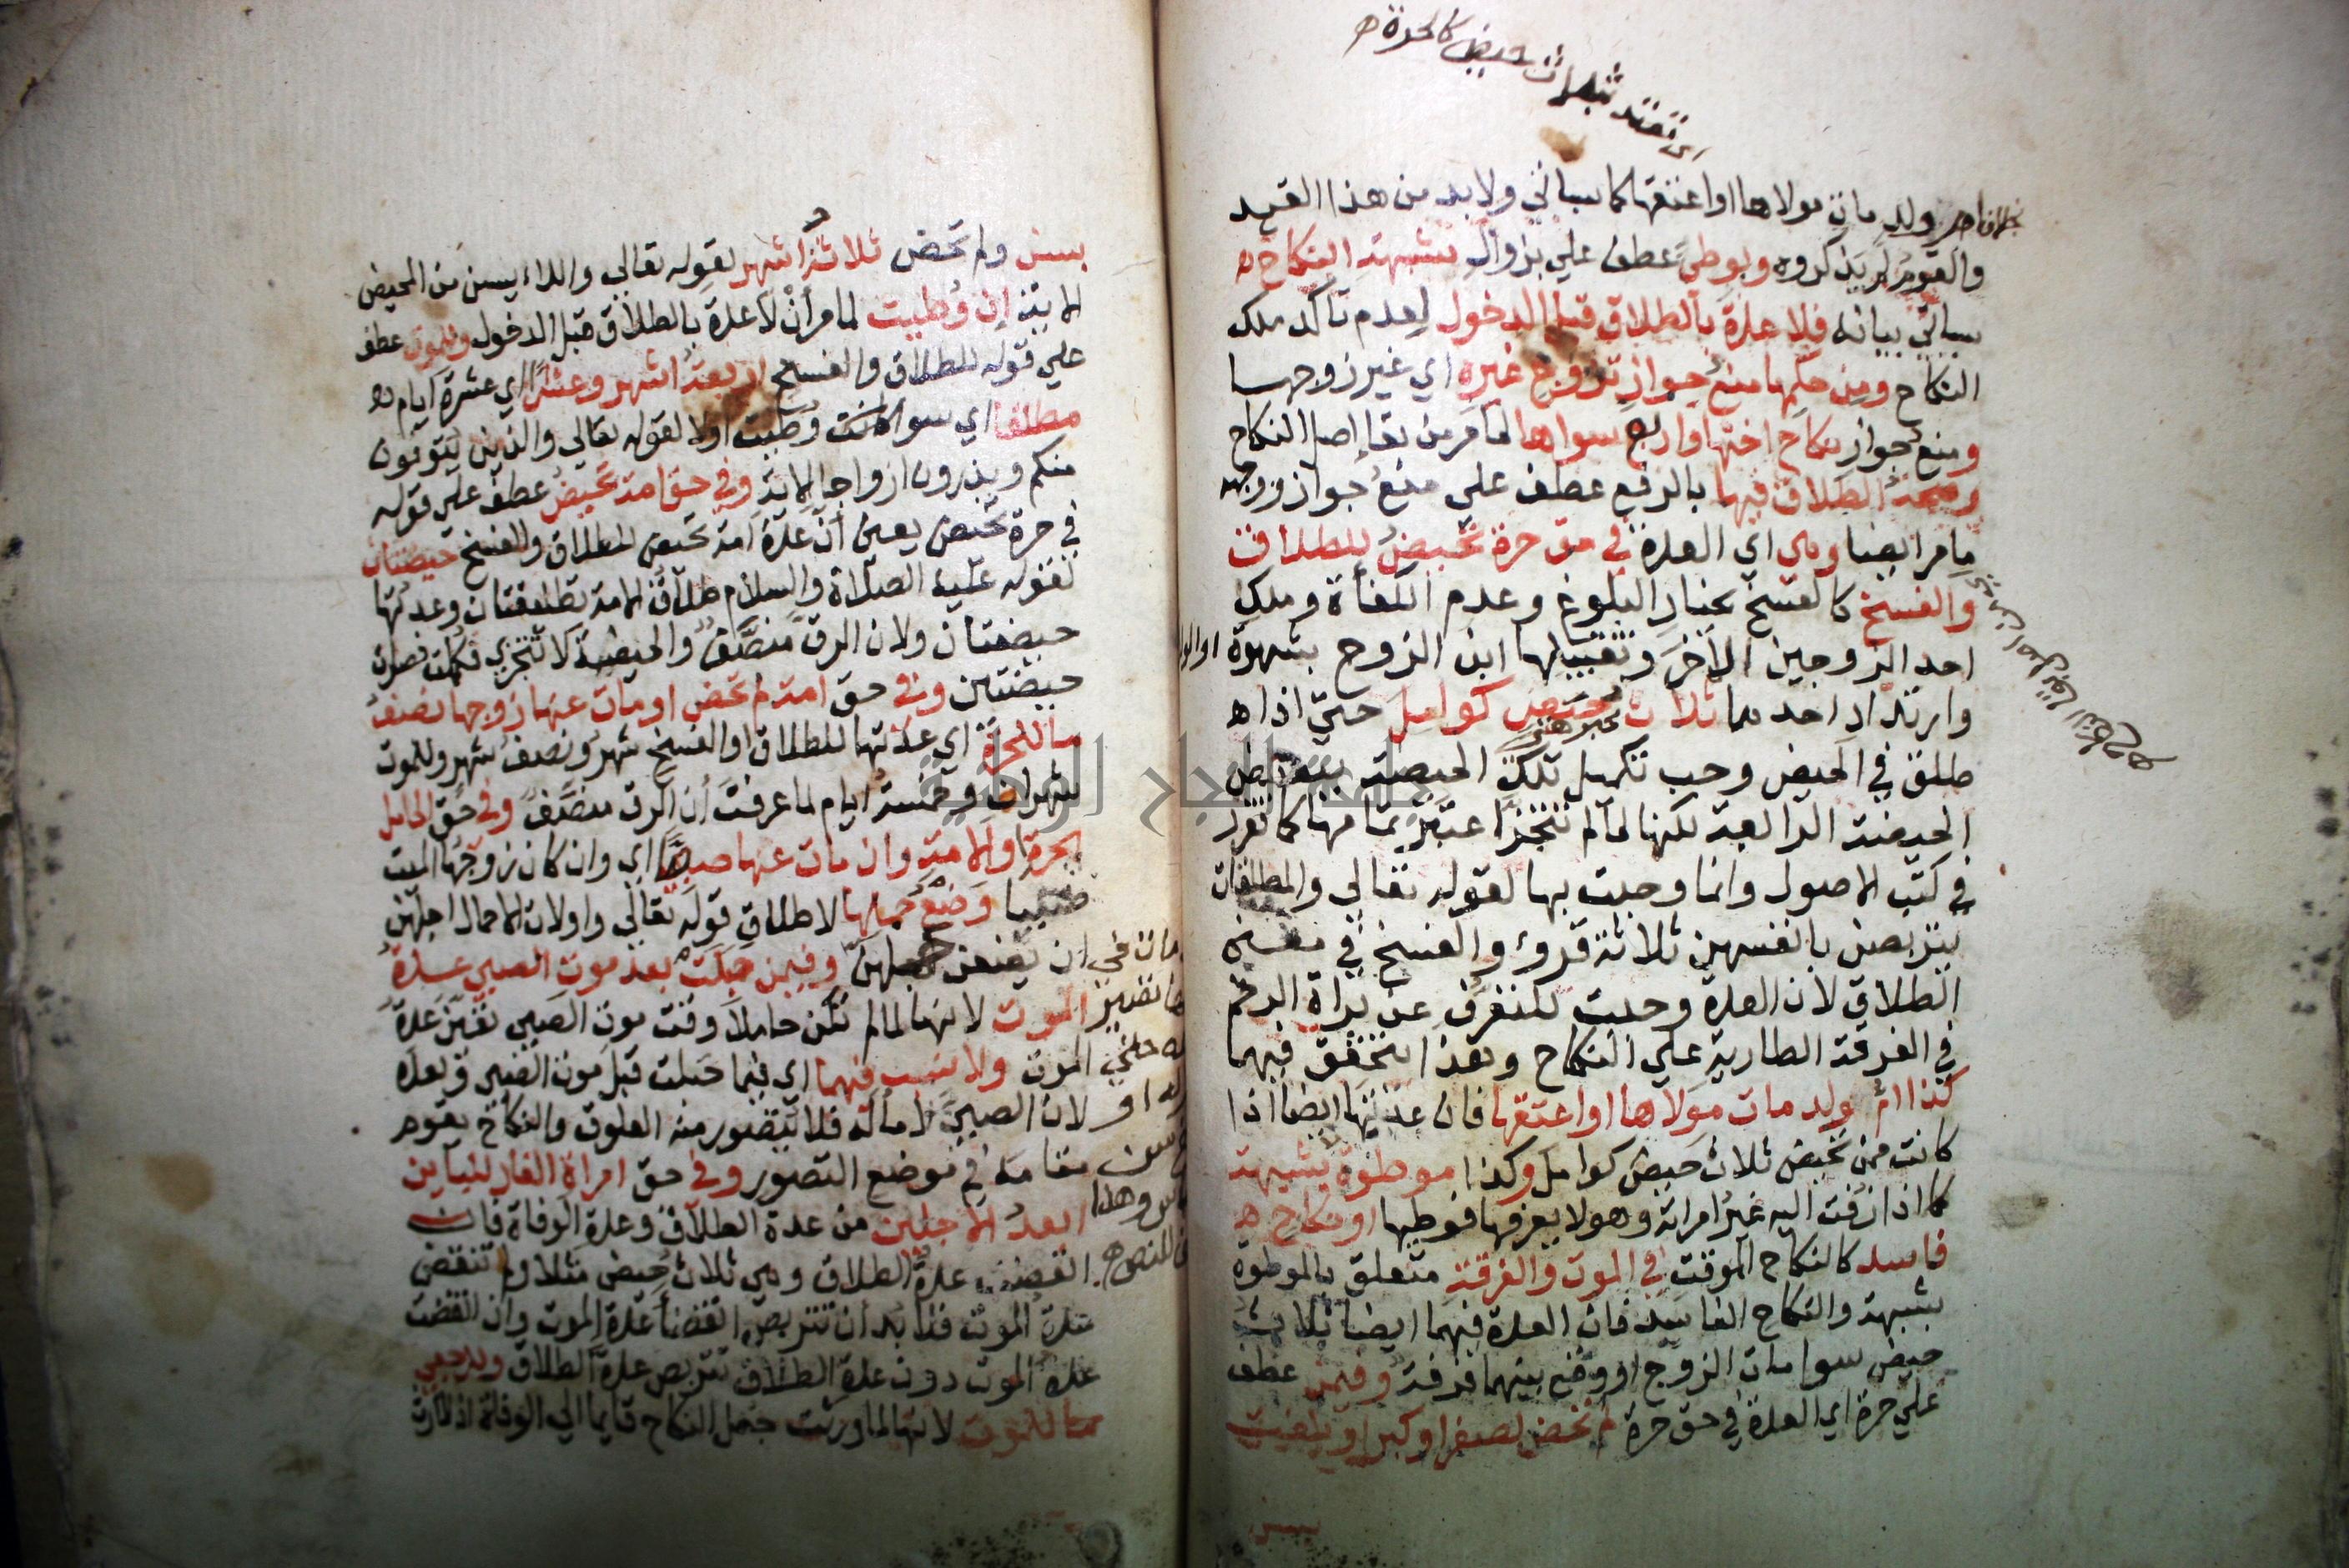 اي تعتد بثلاث حيض كالحرة
ولد مات مولاها او اعتقها كما سياتي ولا بد من هذا القيد
والقوم لم يذكروه وبوطئ عطف علي بزوال بشبهة النكاح
سياتي بيانه فلا عدة بالطلاق قبل الدخول لعدم تأكد ملك
النكاح ومن حكمها منع جواز تزوج غيره اي غير زوجها
ومنع جواز نكاح اختها واربع سواها لما مر من بقا اصل النكاح
وصحة الطلاق فيها بالرفع عطف علي منع جواز ووجهه
ما مر ايضا وهي اي العدة في حق حرة تحيض للطلاق
والفسخ كالفسخ بخيار البلوغ وعدم الكفأة وملك
احد الزوجين الاخر وتقبيلها ابن الزوج بشهوة
وارتداد احدهما ثلاث حيض كوامل حتي اذا
طلق في الحيض وجب تكميل تلك الحيضة ببعض
الحيضة الرابعة لكنها لما لم تتجزأ اعتبر تمامها كما تقرر
في كتب الاصول وانما وجبت بها لقوله تعالي والمطلقات
يتربصن بانفسهن ثلاثة قروء والفسخ في معني
الطلاق لان العدة وجبت للتعرف عن براة الرحم
في الفرقة الطارية علي النكاح وهذا يتحقق فيهما
كذا ام ولد مات مولاها او اعتقها فان عدتها ايضا اذا
كانت ممن تحيض ثلاث حيض كوامل وكذا موطوة بشبهة
كما اذا زفت اليه غير امراته وهو لا يعرفها فوطيها او نكاح
فاسد كالنكاح الموقت في الموت والفرقة متعلق بالموطوة
بشبهة والنكاح الفاسد فان العدة فيهما ايضا ثلاث
حيض سوا مات الزوج او وقع بينهما فرقة وفيمن عطف
علي حرة اي العدة في حق حرة لم تحض لصغر او كبر او بلغت
بسن
بقا اصل النكاح
بسن ولم تحض ثلاثة اشهر لقوله تعالي واللاء يسن من المحيض
الاية إن وُطيت لما مر أن لا عدة بالطلاق قبل الدخول وللموت عطف
علي قوله للطلاق والفسخ اربعة اشهر وعشرا اي عشرة ايام
مطلقا اي سوا كانت وطيت اولا لقوله تعالي والذين يتوفون
منكم ويذرون ازواجا الاية وفي حق امة تحيض عطف علي قوله
في حرة تحيض يعني أن عدة امة تحيض للطلاق والفسخ حيضتان
لقوله عليه الصلاة والسلام طلاق الامة تطليقتان وعدتها
حيضتان ولان الرق منصّف والحيضة لا تتجزي فكملت فصارت
حيضتين وفي حق امة لم تحض او مات عنها زوجها نصف
ما للحرة اي عدتها للطلاق او الفسخ شهر ونصف شهر وللموت
شهران وخمسة ايام لما عرفت أن الرق منصّف وفي حق الحامل
الحرة او الامة وان مات عنها صبي اي وان كان زوجها الميت
صبيا وَضْع حملها لاطلاق قوله تعالي واولات الاحمال اجلهن
ان يضعن حملهن وفيمن حبلت بعد موت الصبي عدة
الموت لانها لما لم تكن حاملا وقت موت الصبي تعين عدة
الموت ولا نسب فيهما اي فيما حبلت قبل موت الصبي وبعده
لان الصبي لا ماء له فلا يتصور منه العلوق والنكاح يقوم
مقامه في موضع التصور وفي حق امراة الفار للباين
ابعد الاجلين من عدة الطلاق وعدة الوفاة فان
انقضت عدة الطلاق وهي ثلاث حيض مثلا ولم تنقض
عدة الموت فلا بد أن تتربص انقضأ عدة الموت وان انقضت
عدة الموت دون عدة الطلاق تتربص عدة الطلاق وللرجعي
ما للموت لانها لما ورثت جعل النكاح قايما الي الوفاة
جامعة النجاح الوطنية